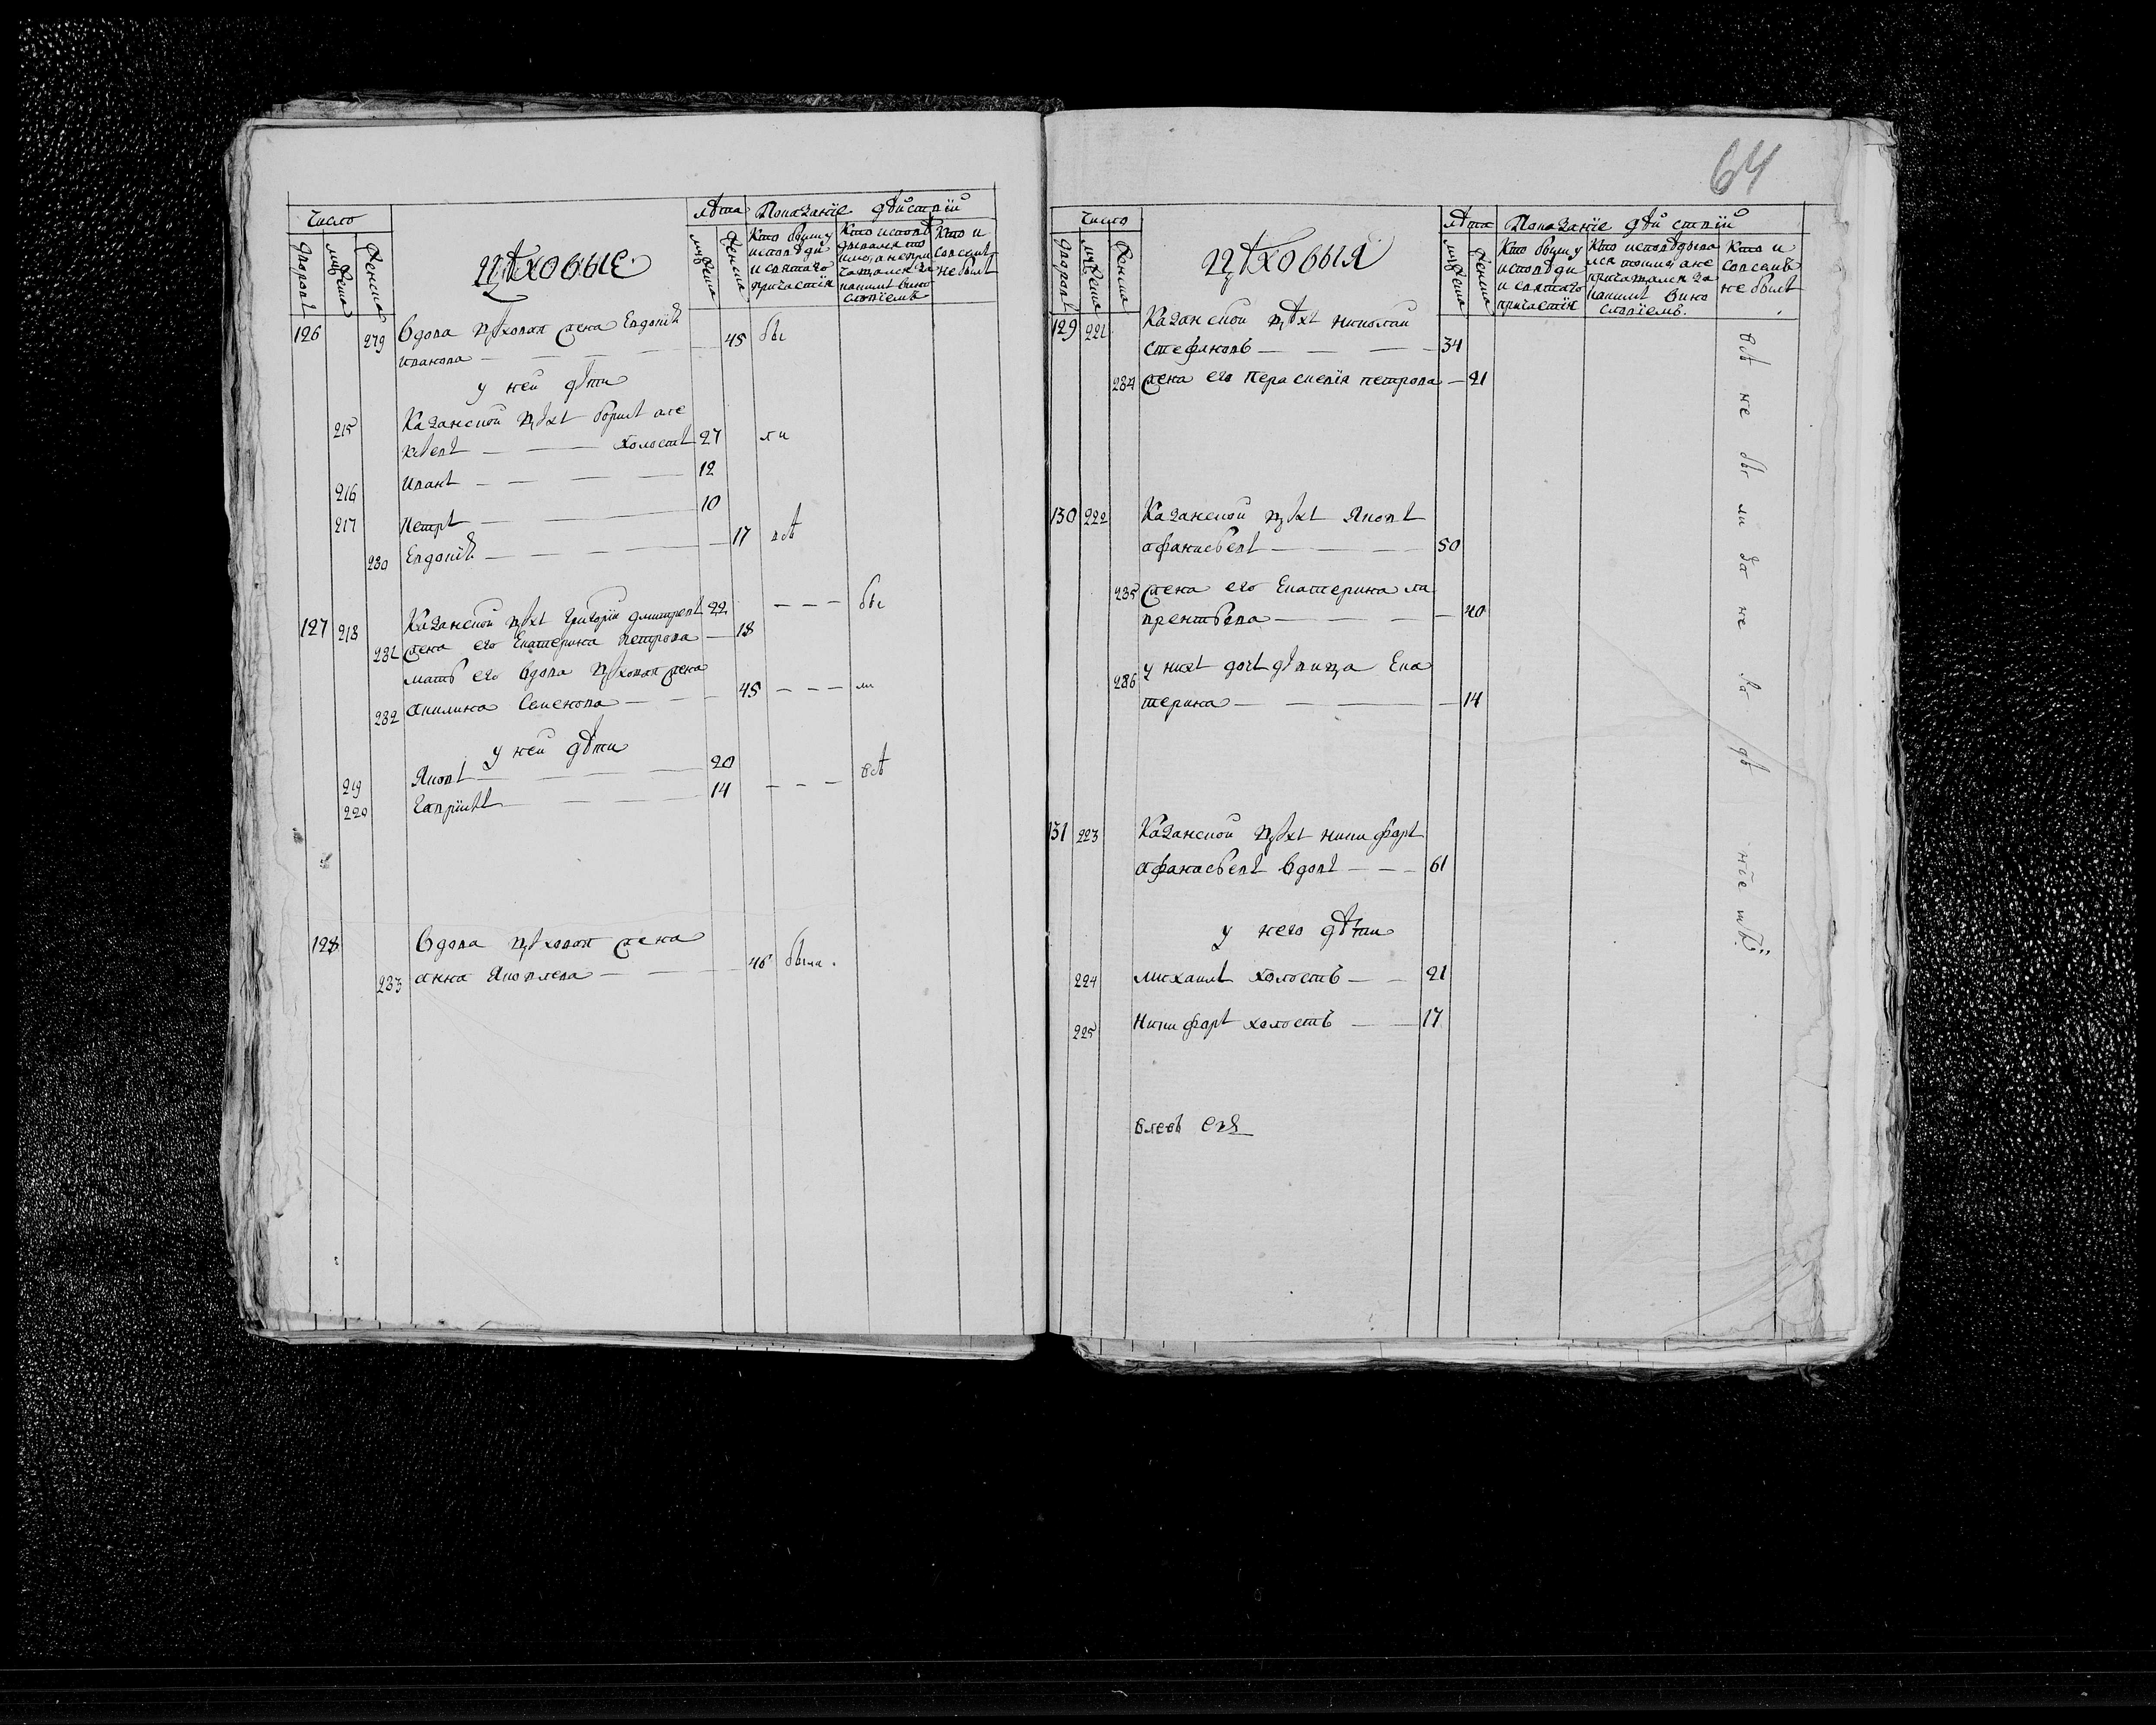 Число
лѣта Показанїе дѣйствїй
дворовъ
мужеска
женска
цѣховые
мужеска
женска
Кто былъ у
исповѣди
и святаго
причастія
Кто исповѣ
дывался то
лько, а не при
чащался за
какимъ вино
словїемъ
Кто и
совсемъ
не былъ
126 279 Вдова цѣховая жена Евдокія
Иванова 45 бы
у ней дѣти
215 Казанской цѣхъ борисъ але
ѣевъ холостъ 27 ли
216 Иванъ 12
217 Петръ 10
280 Евдокія 17 всѣ
127 218 Казанской цѣхъ Григорїй дмитревъ 22 бы
281 жена его Екатерина Петрова 18
мать его вдова цѣховая жена
282 акилина Семенова 45 ли
у ней дѣти
219 Яковъ 20 всѣ
220 Гаврїилъ 14
128 Вдова цѣховая жена
283 анна Яковлева 46 была.
64
Число
лѣта Показанїе дѣйствїй
дворовъ
мужеска
женска
цѣховыя
мужеска
женска
Кто былъ у
исповѣди
и святаго
причастія
Кто исповѣдыва
лся толико, а не
причащался за
какимъ вино
словїемъ.
Кто и
совсемъ
не былъ
129 221 Казанской цѣхъ николай
стефановъ 34
284 жена его Параскевїя петрова 21
130 222 Казанской цѣхъ Яковъ
афанасьевъ 50
285 жена его Екатерина ла
врентьева 40
286 у нихъ дочь дѣвица Ека
терина 14
131 223 Казанской цѣхъ никифоръ
афанасьевъ вдовъ 61
у него дѣти
224 михаилъ холостъ 21
225 Никифоръ холостъ 17
всѣ не бы ли за не ра дѣ нїе мъ